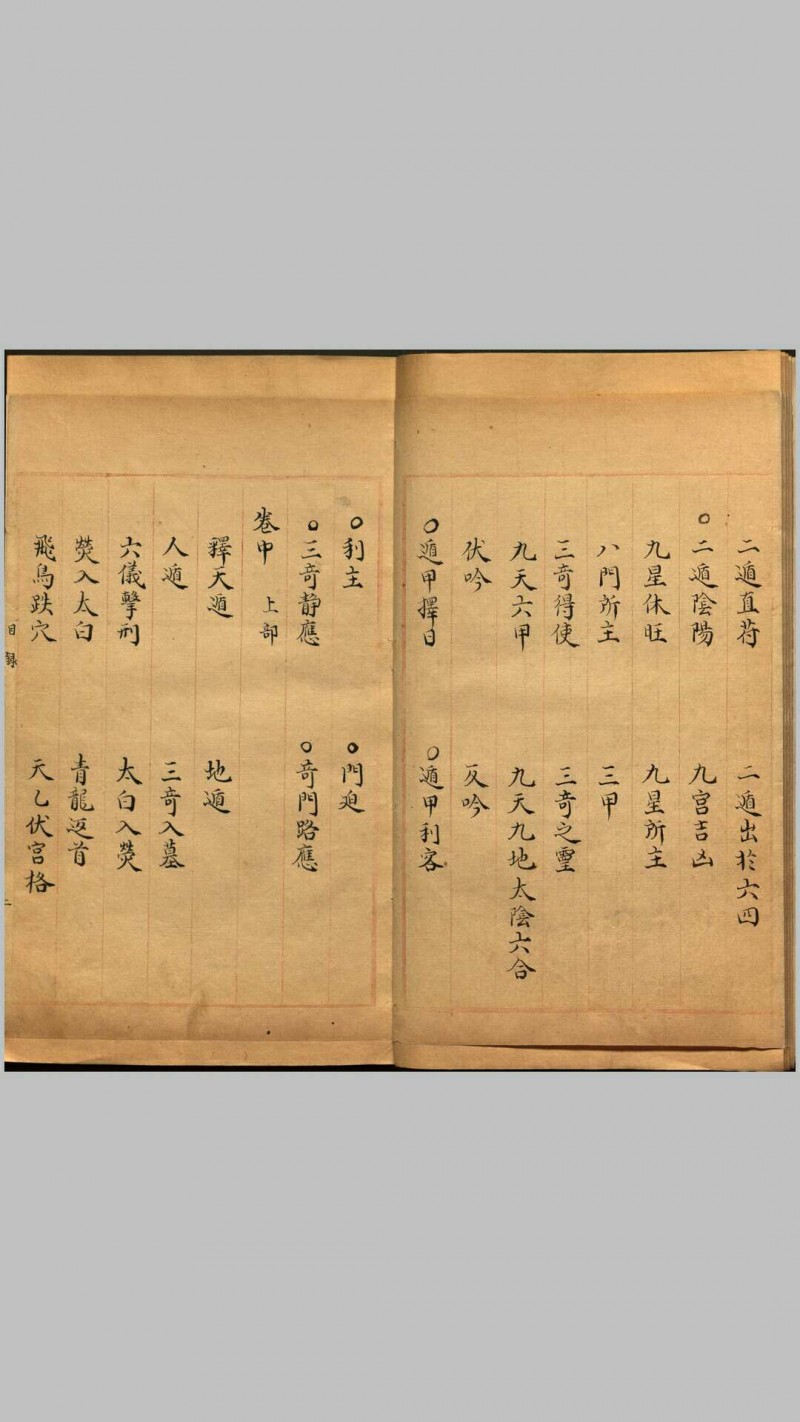 二遁直苻　二遁出於六四
○二遁陰陽　九宮吉凶
九星休旺　九星所主
八門所主　三甲
三奇得使　三奇之𤫊
九天六甲　九天九地太陰六合
伏吟　反吟
○遁甲擇日　○遁甲利客
○利主　○門廹
○三奇静應　○奇門路應
卷中　上部
釋天遁　地遁
人遁　三奇入墓
六儀擊刑　太白入熒
熒入太白　青龍返首
飛鳥跌穴　天乙伏宮格
目録　二